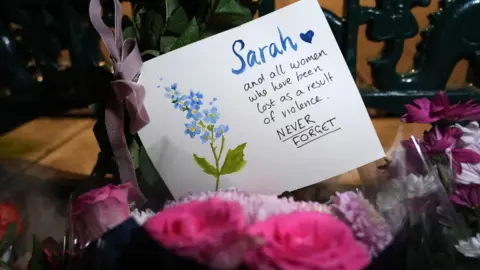 Sarah
and all women
who have been
lost as a result
of violence.
NEVER
FORGET